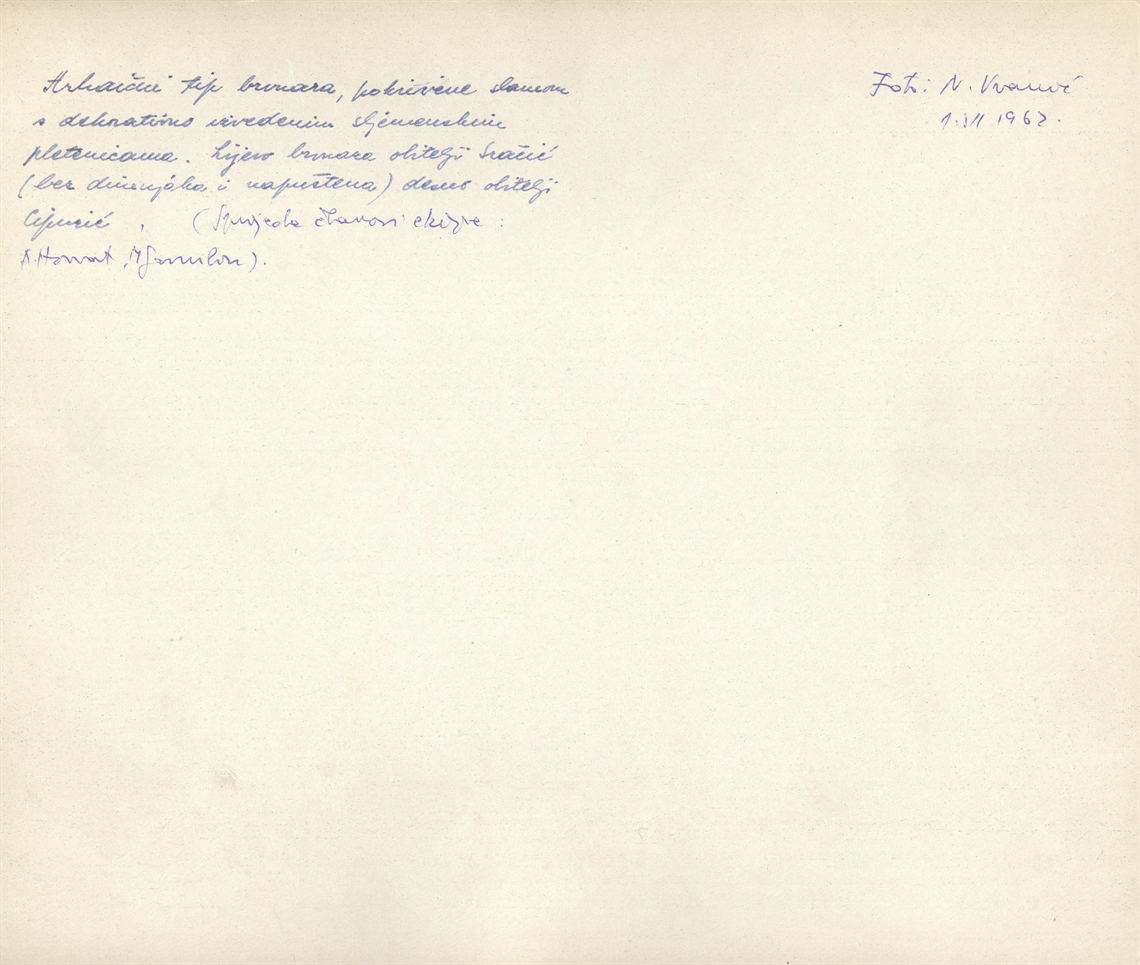 Arhaični tip brvnara, pokrivene slamom
s dekorativno izvedenim sljemenskim
pletenicama. Lijevo brvnara obitelji Sračić
(bez dimnjaka i napuštena) desno obitelji
(Sprijeda članovi ekipe :
A. Horvat,
Foto: N. Vranić
1.XII 1962.